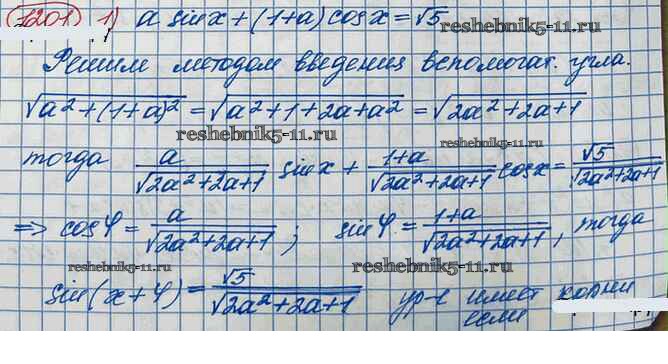 1201 1) a sin x + (1+a) cos x = √5
Решим методом введения вспомогат. угла.
√(a² + (1+a)²) = √(a² + 1 + 2a + a²) = √(2a² + 2a + 1)
reshebnik5-11.ru
reshebnik5-11.ru
тогда a/√(2a²+2a+1) sin x + 1+a/√(2a²+2a+1) cos x = √5/√(2a²+2a+1)
reshebnik5-11.ru
⇒ cos φ = a/√(2a²+2a+1); sin φ = 1+a/√(2a²+2a+1), тогда
reshebnik5-11.ru
reshebnik5-11.ru
sin(x+φ) = √5/√(2a²+2a+1) ур-е имеет корни
если